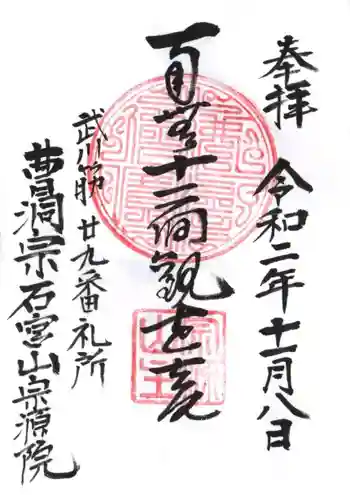 奉拝 令和二年十一月八日
十一面観世音
武川筋 廿九番札所
曹洞宗石宮山宗源院